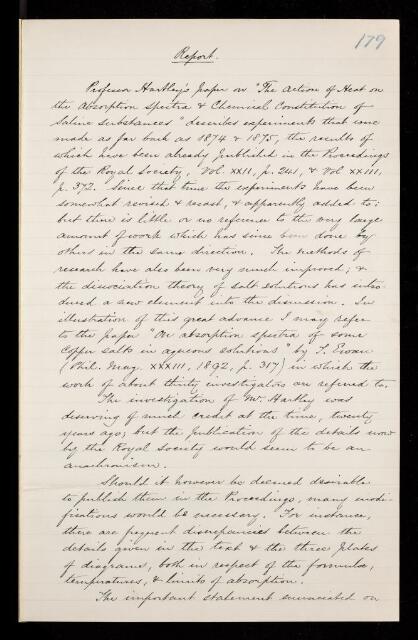 179
Report.
Professor Hartley's paper on "The Action of Heat on
the Absorption Spectra & Chemical Constitution of
Saline Substances" describes experiments that were
made as far back as 1874 & 1875, the results of
which have been already published in the Proceedings
of the Royal Society, Vol. XXII, p. 241, & Vol XXIII,
p. 372. Since that time the experiments have been
somewhat revised & recast, & apparently added to;
but there is little or no reference to the very large
amount of work which has since been done by
others in the same direction. The methods of
research have also been very much improved; &
the dissociation theory of salt solutions has intro
duced a new element into the discussion. In
illustration of this great advance I may refer
to the paper "On absorption spectra of some
Copper salts in aqueous solutions" by T. Ewan
(Phil. Mag. XXXIII, 1892, p. 317) in which the
work of about thirty investigators are referred to.
The investigation of Mr. Hartley was
deserving of much credit at the time, twenty
years ago; but the publication of the details now
by the Royal Society would seem to be an
anachronism.
Should it however be deemed desirable
to publish them in the Proceedings, many modi
fications would be necessary. For instance,
there are frequent discrepancies between the
details given in the text & the three plates
of diagrams, both in respect of the formulae,
temperatures, & limits of absorption.
The important statement enunciated on